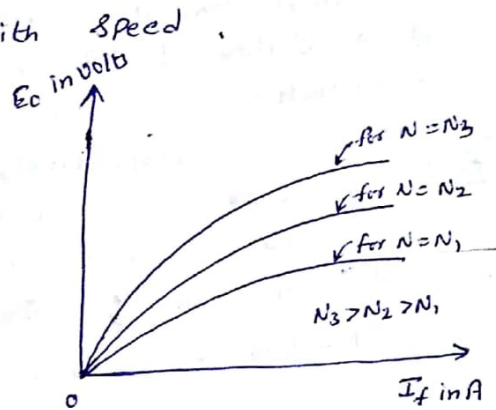 ith Speed.
Ec in volts
for N = N3
for N = N2
for N = N1
N3 > N2 > N1
O
If in A